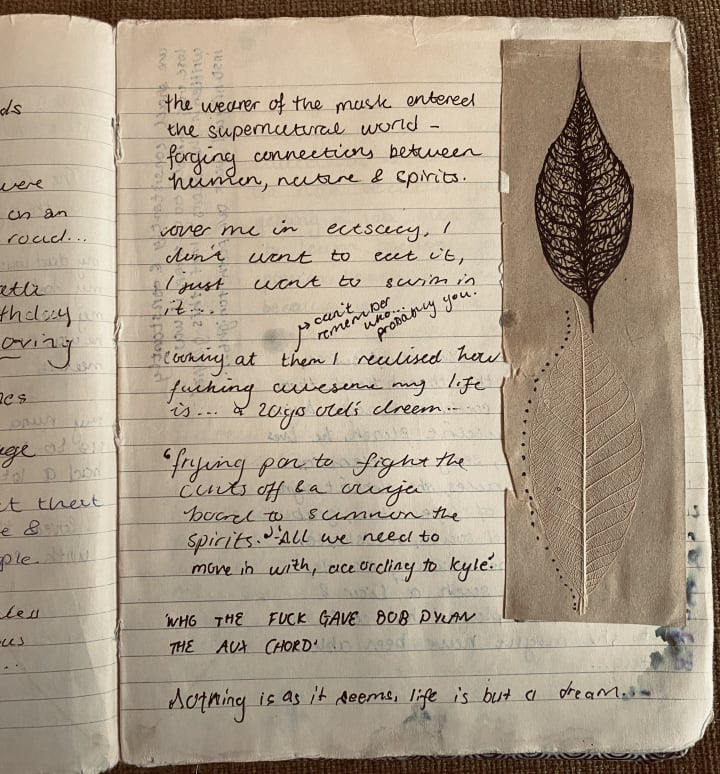 ds
were
on an
road...
thday
oving
age
t that
e &
ple.
less
ous
...
the wearer of the mask entered
the supernatural world -
forging connections between
human, nature & spirits.
cover me in ectscacy, I
don't want to eat it,
I just want to swim in
it...
→ can't
remember
who...
probably you.
looking at them I realised how
fucking awesome my life
is... a 20ygo old's dream...
'frying pan to fight the
cunts off & a ouija
board to summon the
spirits.' - All we need to
move in with, according to Kyle.
'WHO THE FUCK GAVE BOB DYLAN
THE AUX CHORD'
Nothing is as it seems, life is but a dream...